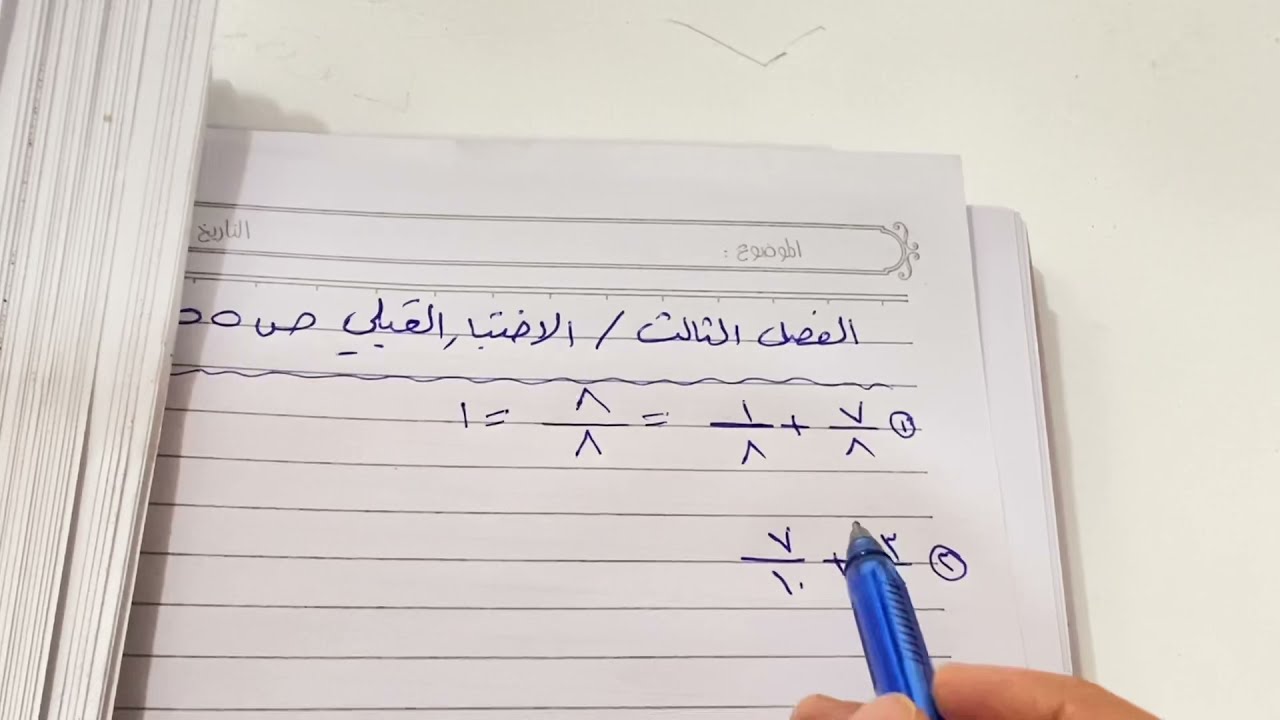 الموضوع : التاريخ
الفصل الثالث / الاختبار القبلي ص
① ٧/٨ + ١/٨ = ٨/٨ = ١
② ٣ + ٧/١٠